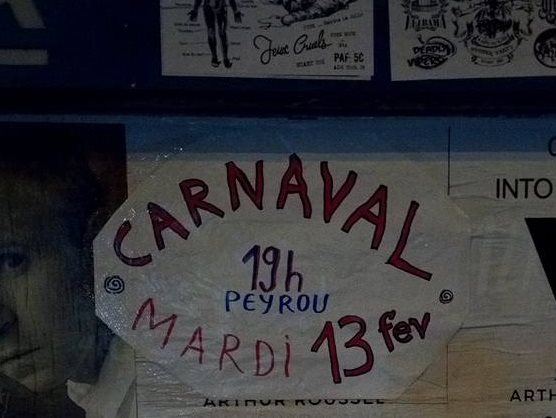 Jeux Cruels
PAF: 5€
DEADLY
VIPERS
CARNAVAL
19h
PEYROU
MARDi 13 fev
INTO
ARTHUR ROUSSEL
ARTH